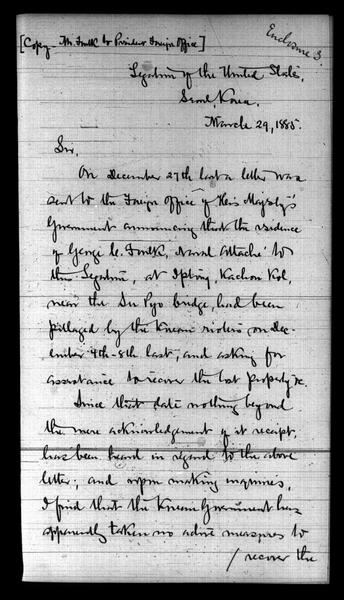 Enclosure 3.
[Copy — Mr. Foulk to President Foreign Office]
Legation of the United States,
Seoul, Korea.
March 29, 1885.
Sir,
On December 27th last a letter was
sent to the Foreign Office of His Majesty's
Government announcing that the residence
of George C. Foulk, Naval Attaché to
this Legation, at Iptong, Kachon Kol,
near the Su Pyo bridge, had been
pillaged by the Korean rioters on Dec-
ember 4th-8th last, and asking for
assistance to recover the lost property &c.
Since that date nothing beyond
the mere acknowledgement of it receipt,
has been heard in regard to the above
letter; and upon making inquiries,
I find that the Korean Government has
apparently taken no active measures to
/ recover the